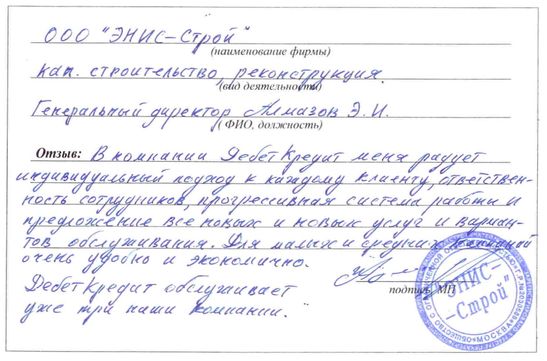 ООО "ЭНИС-Строй"
(наименование фирмы)
кап. строительство, реконструкция.
(вид деятельности)
Генеральный директор Алмазов Э.И.
( ФИО, должность)
Отзыв: В компании ДебетКредит меня радует
индивидуальный подход к каждому клиенту, ответствен-
ность сотрудников, прогрессивная система работы и
предложение все новых и новых услуг и вариан-
тов обслуживания. Для малых и средних компаний
очень удобно и экономично.
подпись, МП
ДебетКредит обслуживает
уже три наши компании.
"ЭНИС-
Строй"
МОСКВА